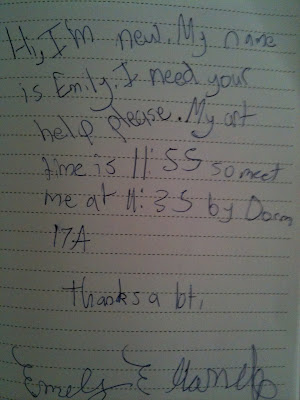 Hi, I'm new. My name
is Emily. I need your
help please. My art
time is 11:55 so meet
me at 11:35 by Dorm
17A
thanks a lot,
Emely E